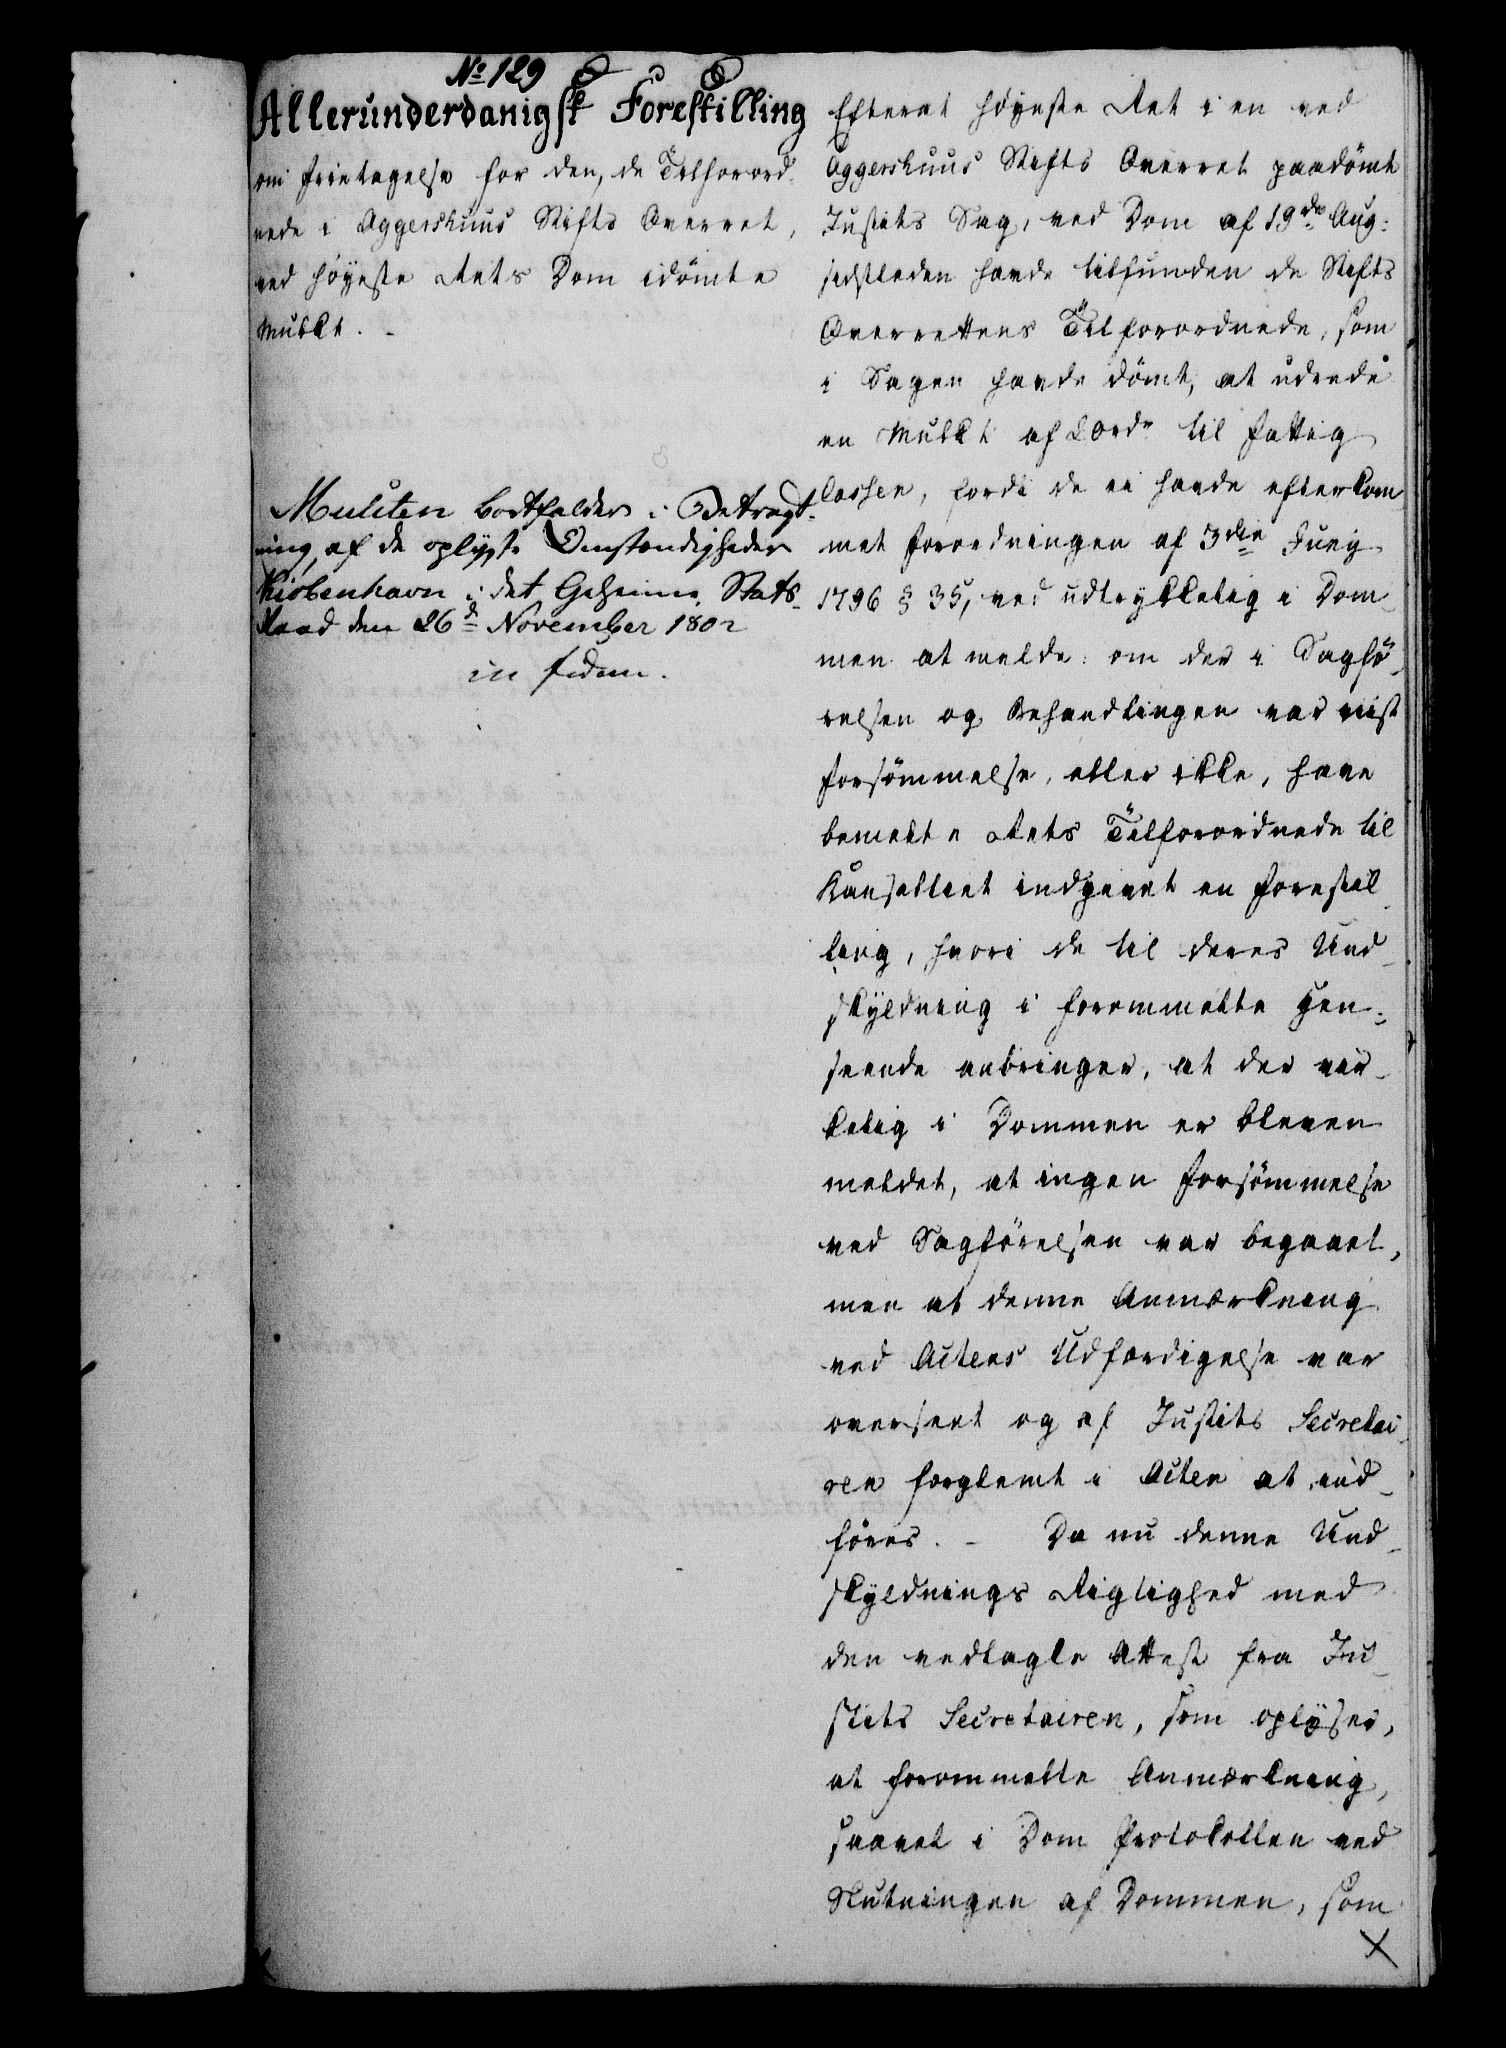 No 129
Allerunderdanigst Forestilling
om Fritagelse for den, de Tilforord-
nede i Aggershuus Stifts Overret,
ved Høyeste Rets Dom idömte
Mulkt. -
Mulcten bortfalder i Betragt-
ning af de oplyste Omstændigheder
Kiøbenhavn i det Geheime Stats-
Raad den 26d November 1802
in fidem.
Efterat Høyeste Ret i en ved
Aggershuus Stifts Overret paadömt
Justits Sag, ved Dom af 19de Aug:
sidstleden havde tilfunden de Stifts
Overrettens Tilforordnede, som
i Sagen havde dömt, at udrede
en Mulkt af 20rdr til Fattig
Cassen, fordi de ei havde efterkom-
met Forordningen af 3die Juny
1796 § 35, ved udtrykkelig i Dom-
men at melde: om der i Sagfö-
relsen og Behandlingen var viist
Forsömmelse, eller ikke, have
bemelte Rets Tilforordnede til
Kanselliet indgivet en Forestil-
ling, hvori de til deres Und-
skyldning i forommelte Hen-
seende anbringer, at der vir-
kelig i Dommen er bleven
meldet, at ingen Forsömmelse
ved Sagförelsen var begaaet,
men at denne Anmærkning
ved Actens Udfærdigelse var
overseet og af Justits Secretai-
ren forglemt i Acten at ind-
föres. - Da nu denne Und-
skyldnings Rigtighed med
den vedlagte Attest fra Ju-
stits Secretairen, som oplyser,
at forommelte Anmærkning,
saavel i Dom Protokollen ved
Slutningen af Dommen, som